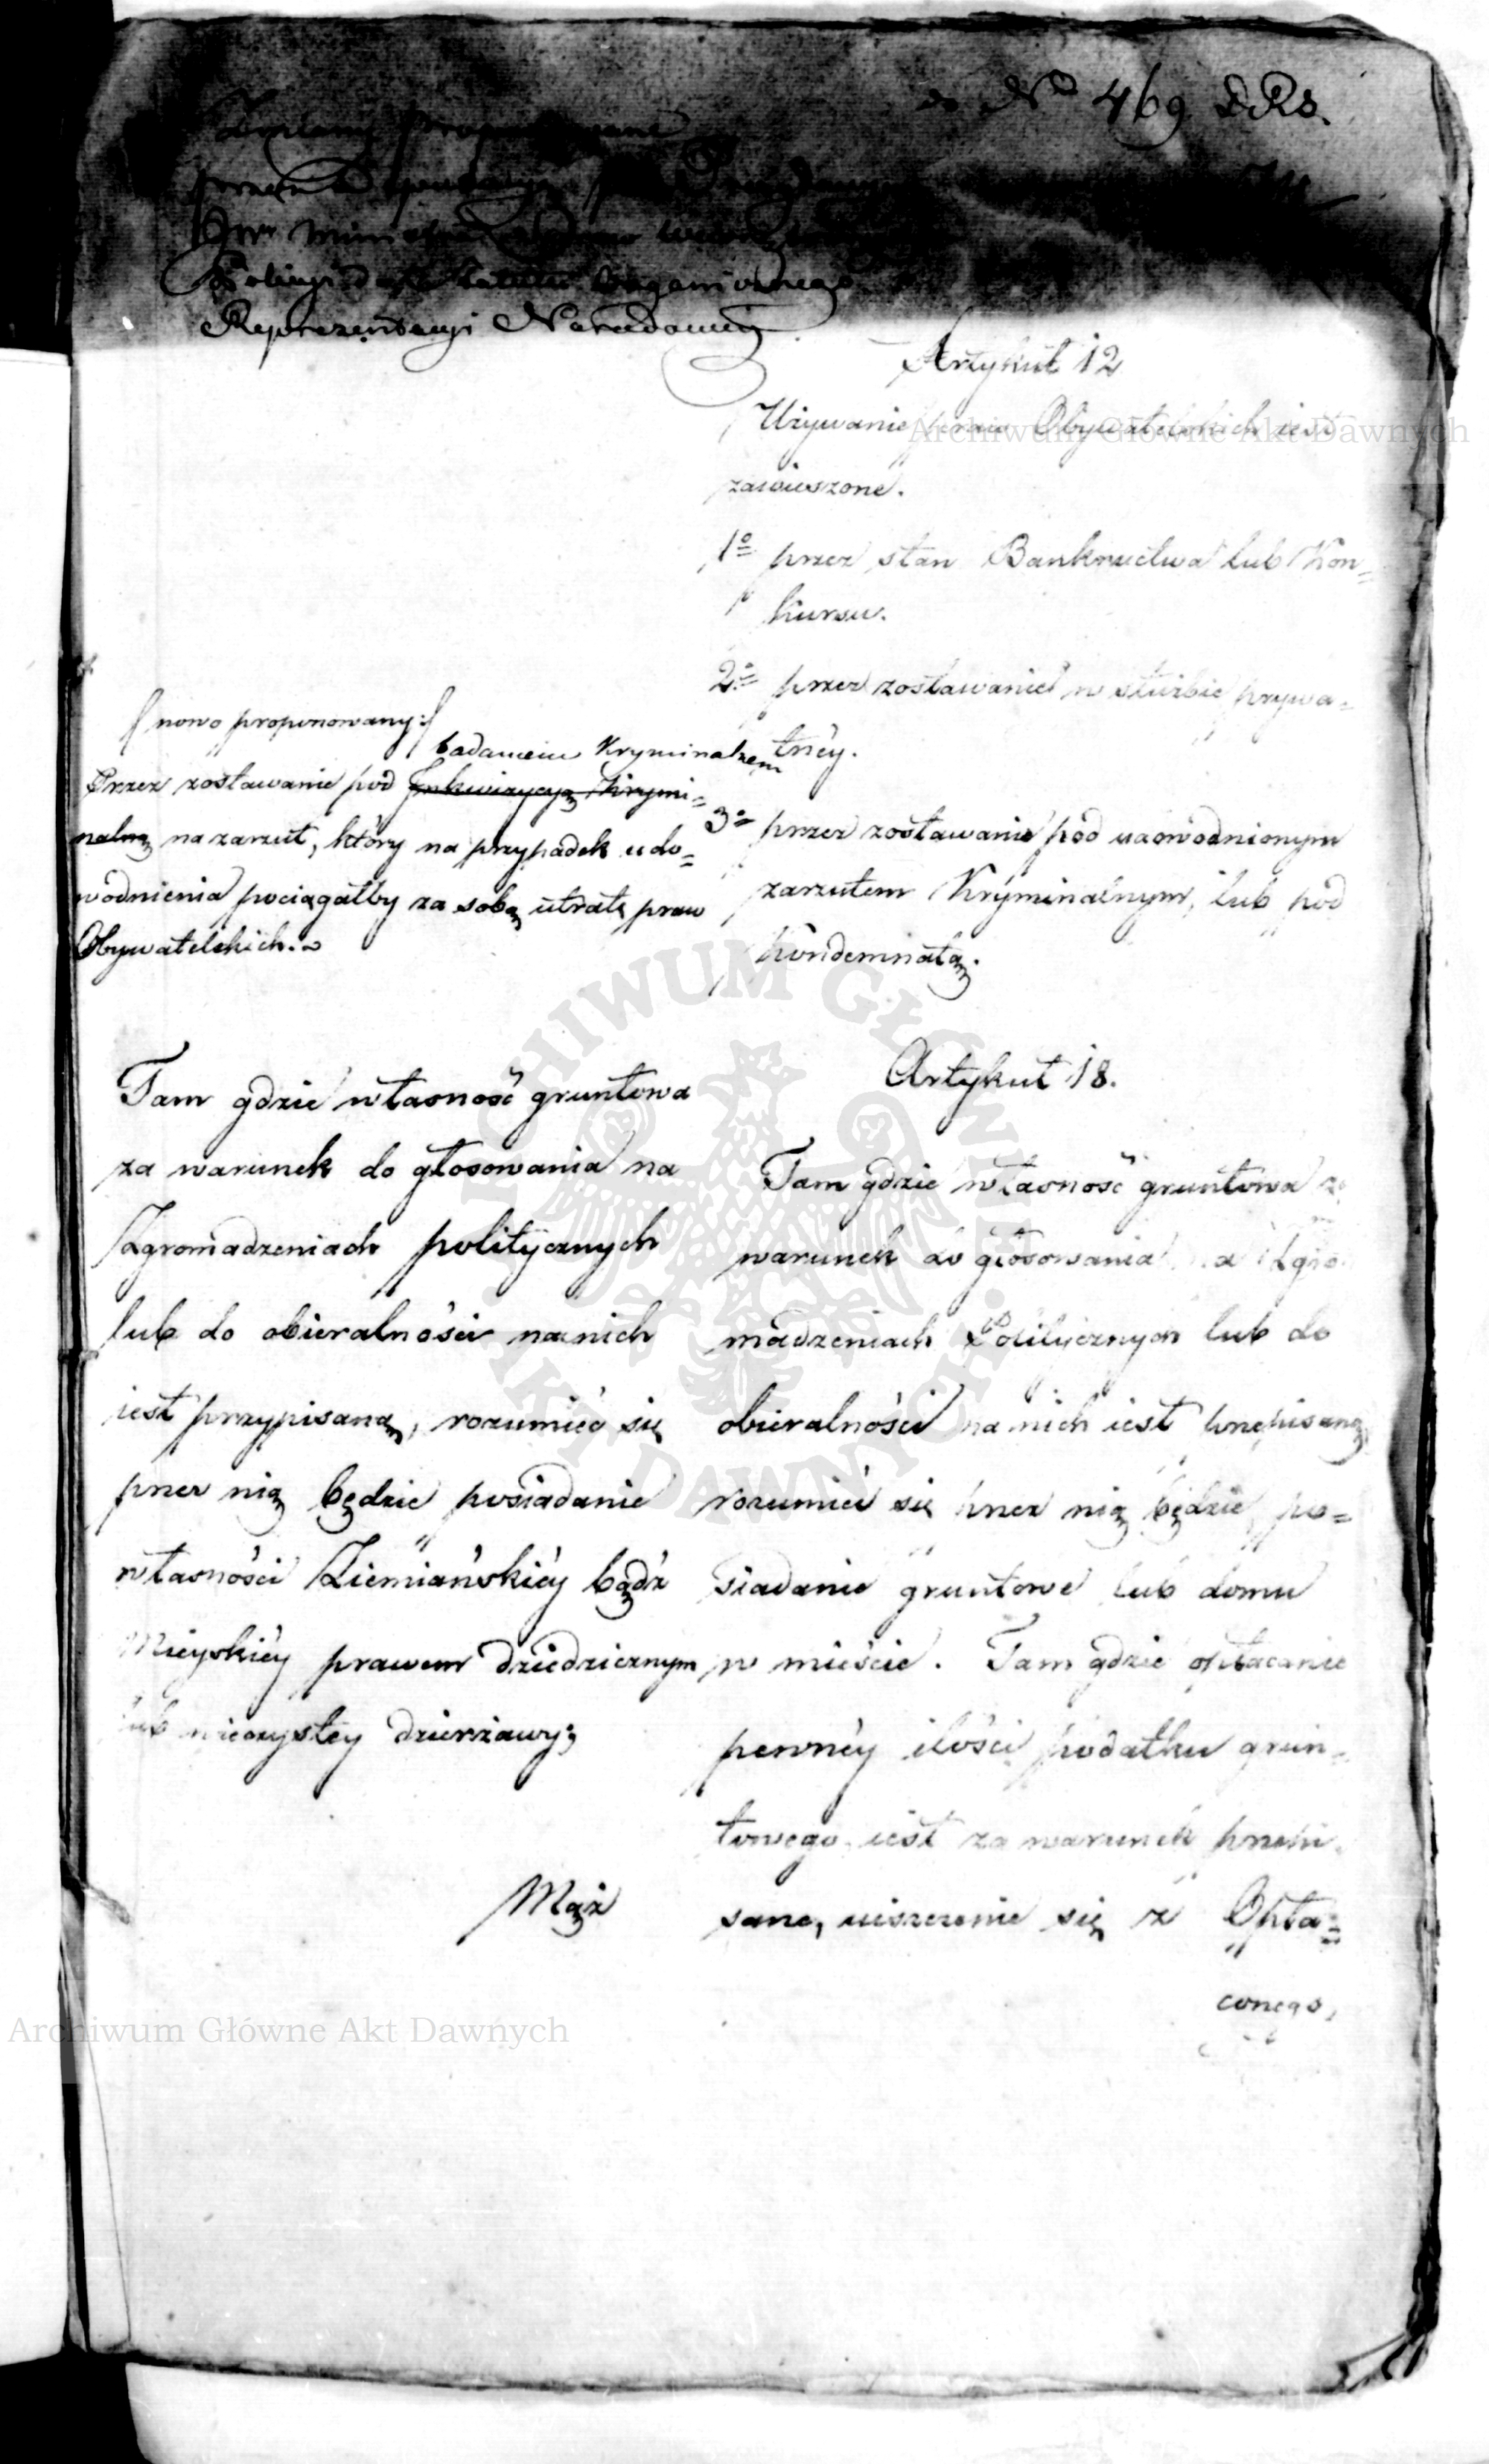 do No 469 DRS.
Zmiany proponowane
przez
JWo Ministra
Policyi do Statutu Organicznego
Reprezentacyi Narodowey
Artykuł 12
Używanie praw Obywatelskich iest
zawieszone.
1o przez stan Bankructwa lub Kon=
kursu.
2o przez zostawanie w służbie prywa=
tnéy.
3o przez zostawanie pod udowodnionym
zarzutem Kryminalnym, lub pod
kondemnatą.
/nowo proponowany:/
badaniem Kryminalnem
Przez zostawanie pod Inkwizycyą Krymi=
nalną na zarzut, który na przypadek udo=
wodnienia pociągałby za sobą utratę praw
Obywatelskich.
Tam gdzie własność gruntowa
za warunek do głosowania na
Zgromadzeniach politycznych
lub do obieralności na nich
iest przypisaną, rozumieć się
przez nią będzie posiadanie
własności Ziemiańskiéy bądź
Mieyskiéy prawem dziedzicznym
lub wieczystey dzierżawy;
Mąż
Artykuł 18.
Tam gdzie własność gruntowa za
warunek do głosowania na Zgro
madzeniach Politycznych lub do
obieralności na nich iest przepisaną,
rozumieć się przez nią będzie, po=
siadanie gruntowe lub domu
w mieście. Tam gdzie opłacanie
pewnéy ilości podatku grun=
towego iest za warunek przepi=
sane, uiszczenie się z Opła=
conego,
Archiwum Główne Akt Dawnych
Archiwum Główne Akt Dawnych
ARCHIWUM GŁÓWNE AKT DAWNYCH